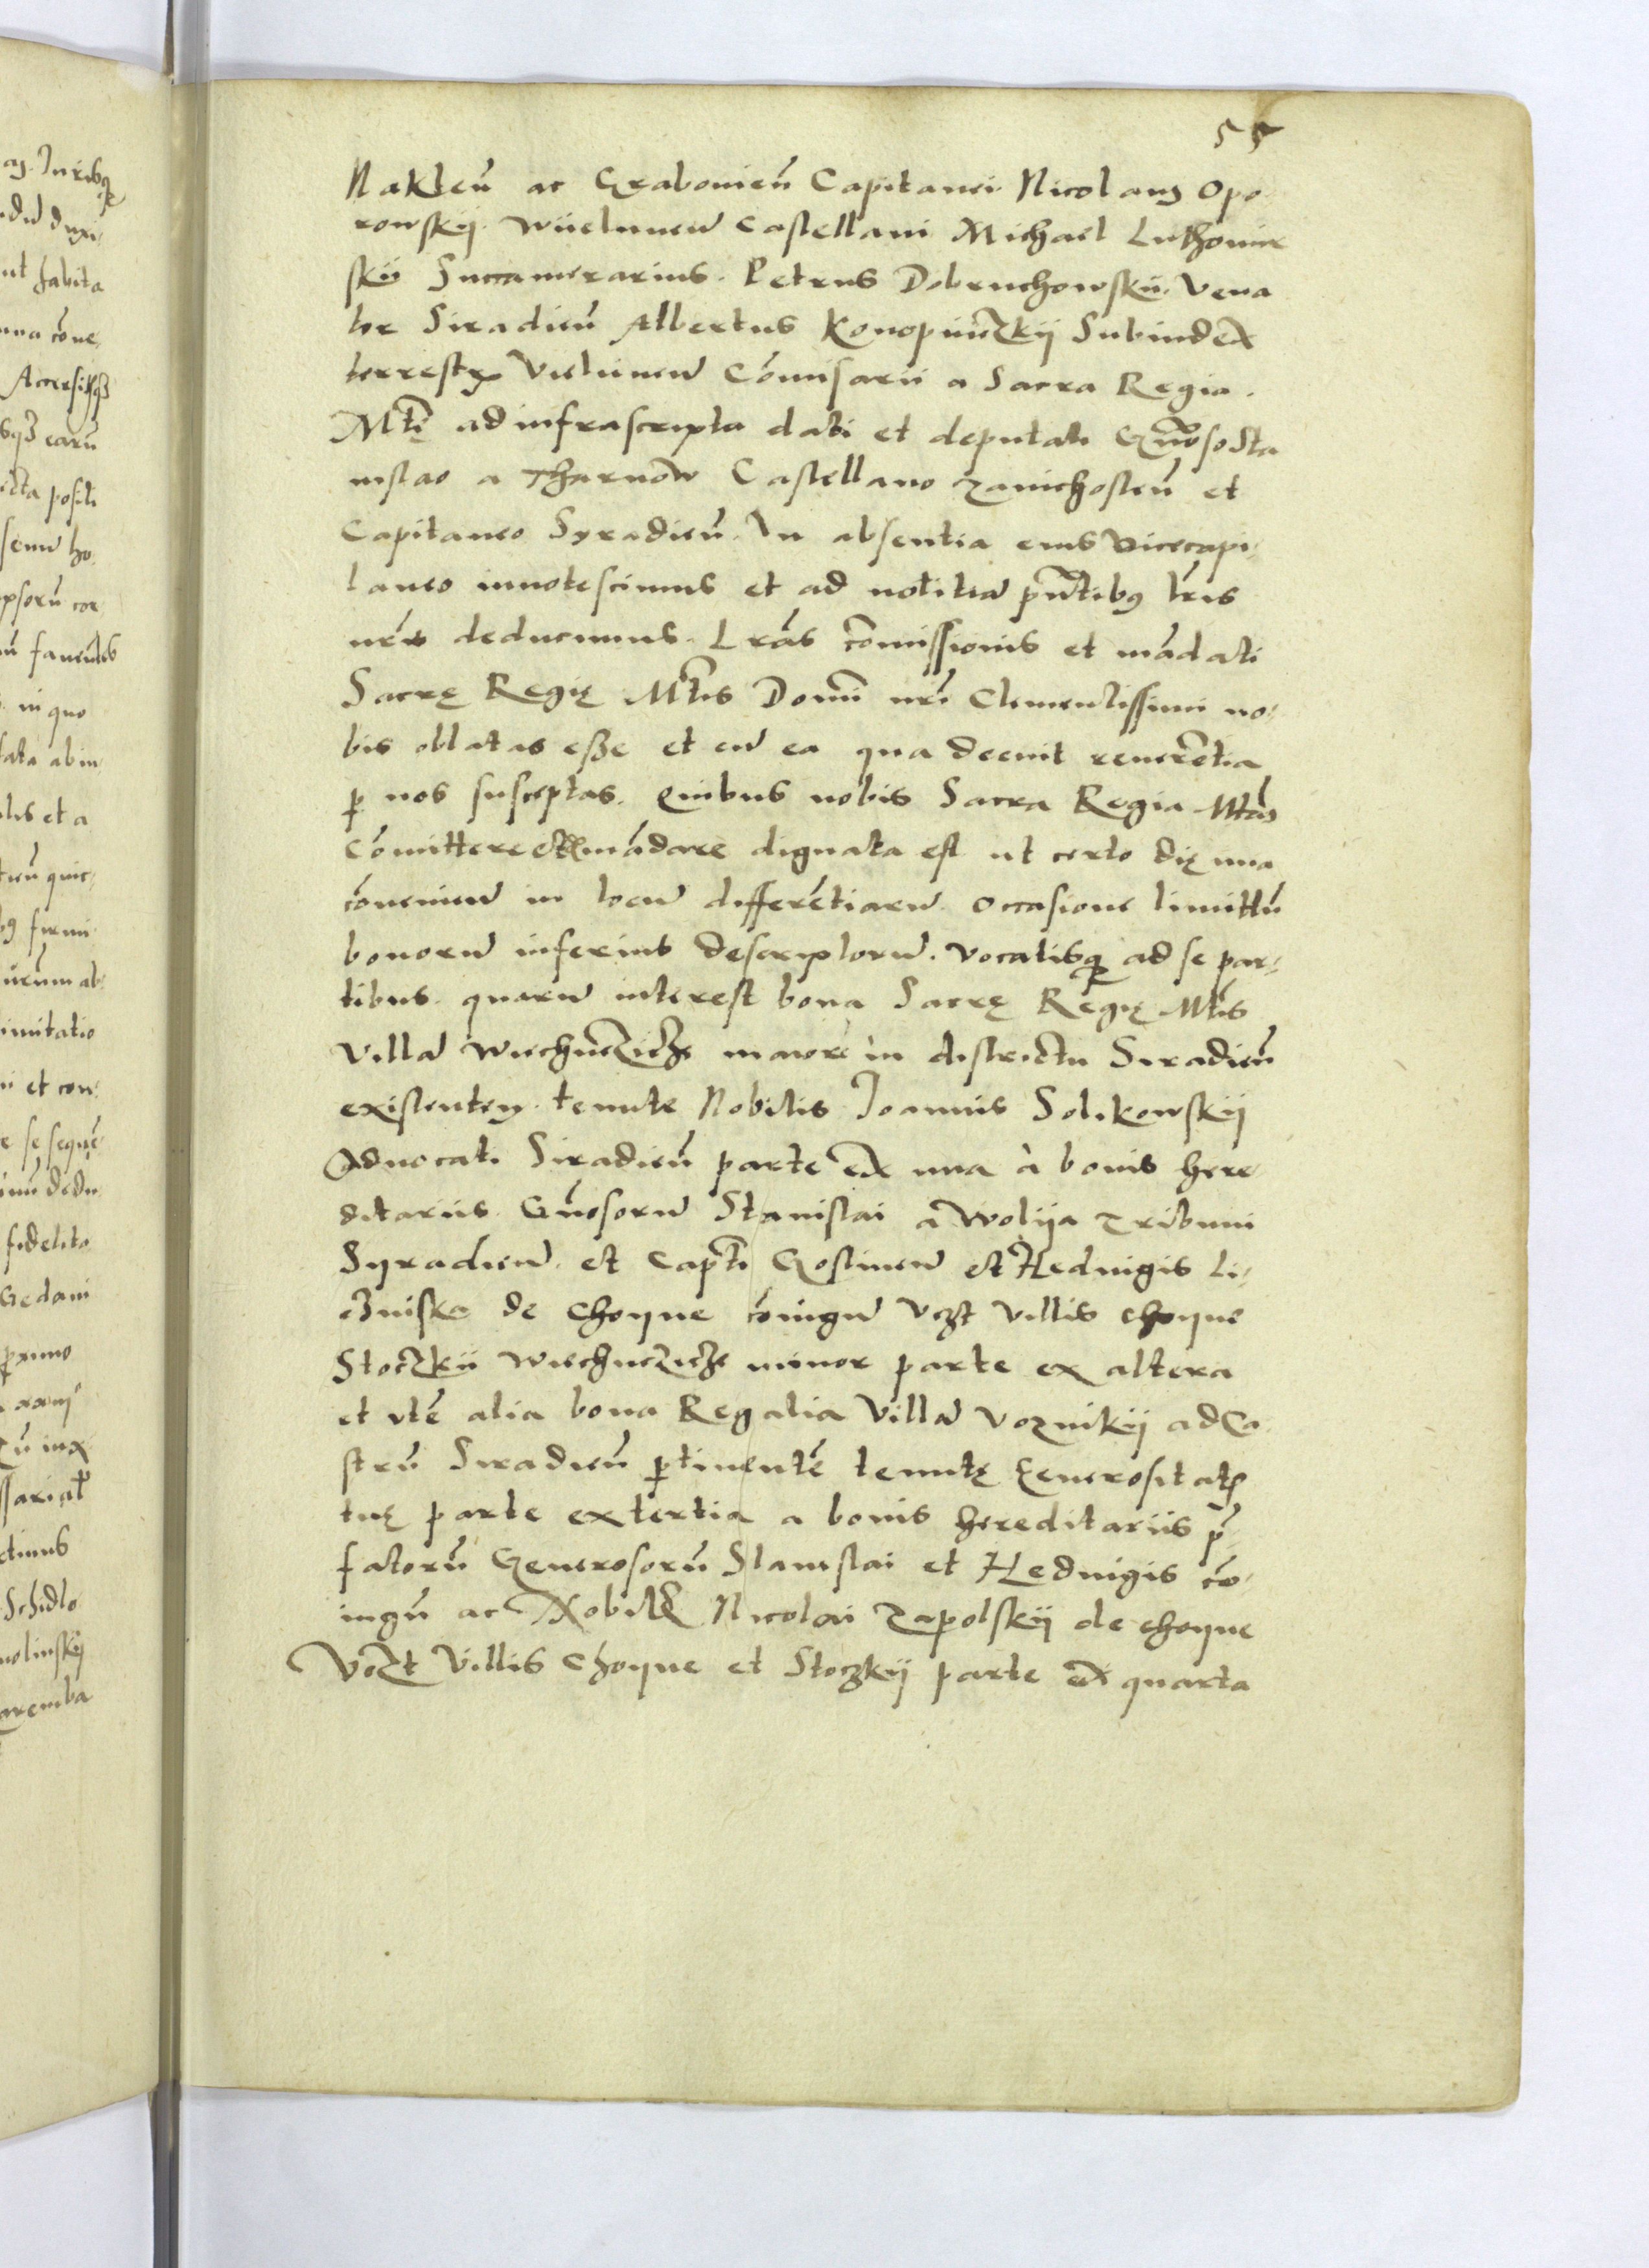 55
Naklen̄ ac Grabovien̄ Capitanei Nicolaus Opo
rowskij Wiielunen̄ Castellani Michael Luthomir
skii Succamerarius. Petrus Dobruchowskii. Vena
tor Siradien̄ Albertus Konopniczkij Subiudex
terrestr Vielunen̄ Com̄isarii a Sacra Regia.
Mtē ad infrascripta dati et deputati Gn̄oso Sta
nislao a Tharnow Castellano Zawichosten̄ et
Capitaneo Syradien̄. In absentia eius Vicecapi-
taneo innotescimus et ad notitiā pn̄tibus lr̄is
nr̄is deducimus. Lrās com̄issionis et mādati
Sacrę Regię Mtis Domī nr̄i Clementissimi no-
bis oblatas eße et cū ea qua decuit reverētia
p nos susceptas. Quibus nobis Sacra Regia Mtas
Com̄ittere et mādare dignata est ut certo dię una
cōvenien̄ in locū differētiarū occasione limitū
bonorū inferius descriptorū. Vocatisq ad se par-
tibus quarū interest bona Sacrę Regię Mtis
Villā Wiechuczicze maiorē in districtu Siradien̄
existentem tenute Nobilis Joannis Solikowskij
Advocati Siradien̄ parte ex una à bonis here-
ditariis Gn̄osorū Stanislai a Woliia Tribuni
Syradien̄ et Capti Gostinen̄ et Hedvigis Li-
czniska de Choyne cōiugū Vczt Villis Choyne
Stoczkii Wiechuczicze minor parte ex altera
et itē alia bona Regalia Villā Voznikij ad Ca
strū Siradien̄ ptinentē tenutę Generositatis
tuę parte ex tertia a bonis hereditariis p̄-
fatorū Generosorū Stanislai et Hedvigis cō-
iugū ac Nobilis Nicolai Zapolskij de Choyne
Voczt Villis Choyne et Stoczkij parte ex quarta